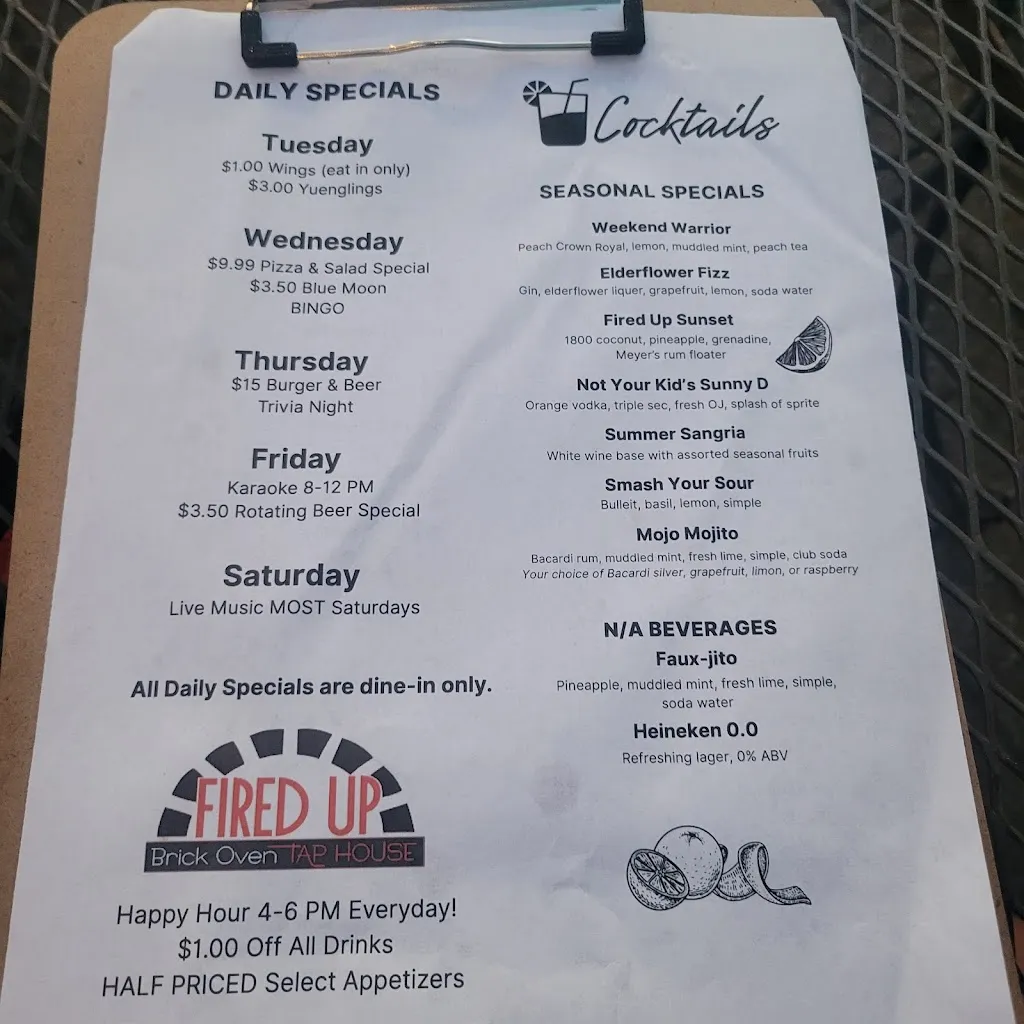 DAILY SPECIALS
Tuesday
$1.00 Wings (eat in only)
$3.00 Yuenglings
Wednesday
$9.99 Pizza & Salad Special
$3.50 Blue Moon
BINGO
Thursday
$15 Burger & Beer
Trivia Night
Friday
Karaoke 8-12 PM
$3.50 Rotating Beer Special
Saturday
Live Music MOST Saturdays
All Daily Specials are dine-in only.
FIRED UP
Brick Oven TAP HOUSE
Happy Hour 4-6 PM Everyday!
$1.00 Off All Drinks
HALF PRICED Select Appetizers
Cocktails
SEASONAL SPECIALS
Weekend Warrior
Peach Crown Royal, lemon, muddled mint, peach tea
Elderflower Fizz
Gin, elderflower liquer, grapefruit, lemon, soda water
Fired Up Sunset
1800 coconut, pineapple, grenadine,
Meyer's rum floater
Not Your Kid's Sunny D
Orange vodka, triple sec, fresh OJ, splash of sprite
Summer Sangria
White wine base with assorted seasonal fruits
Smash Your Sour
Bulleit, basil, lemon, simple
Mojo Mojito
Bacardi rum, muddled mint, fresh lime, simple, club soda
Your choice of Bacardi silver, grapefruit, limon, or raspberry
N/A BEVERAGES
Faux-jito
Pineapple, muddled mint, fresh lime, simple,
soda water
Heineken 0.0
Refreshing lager, 0% ABV